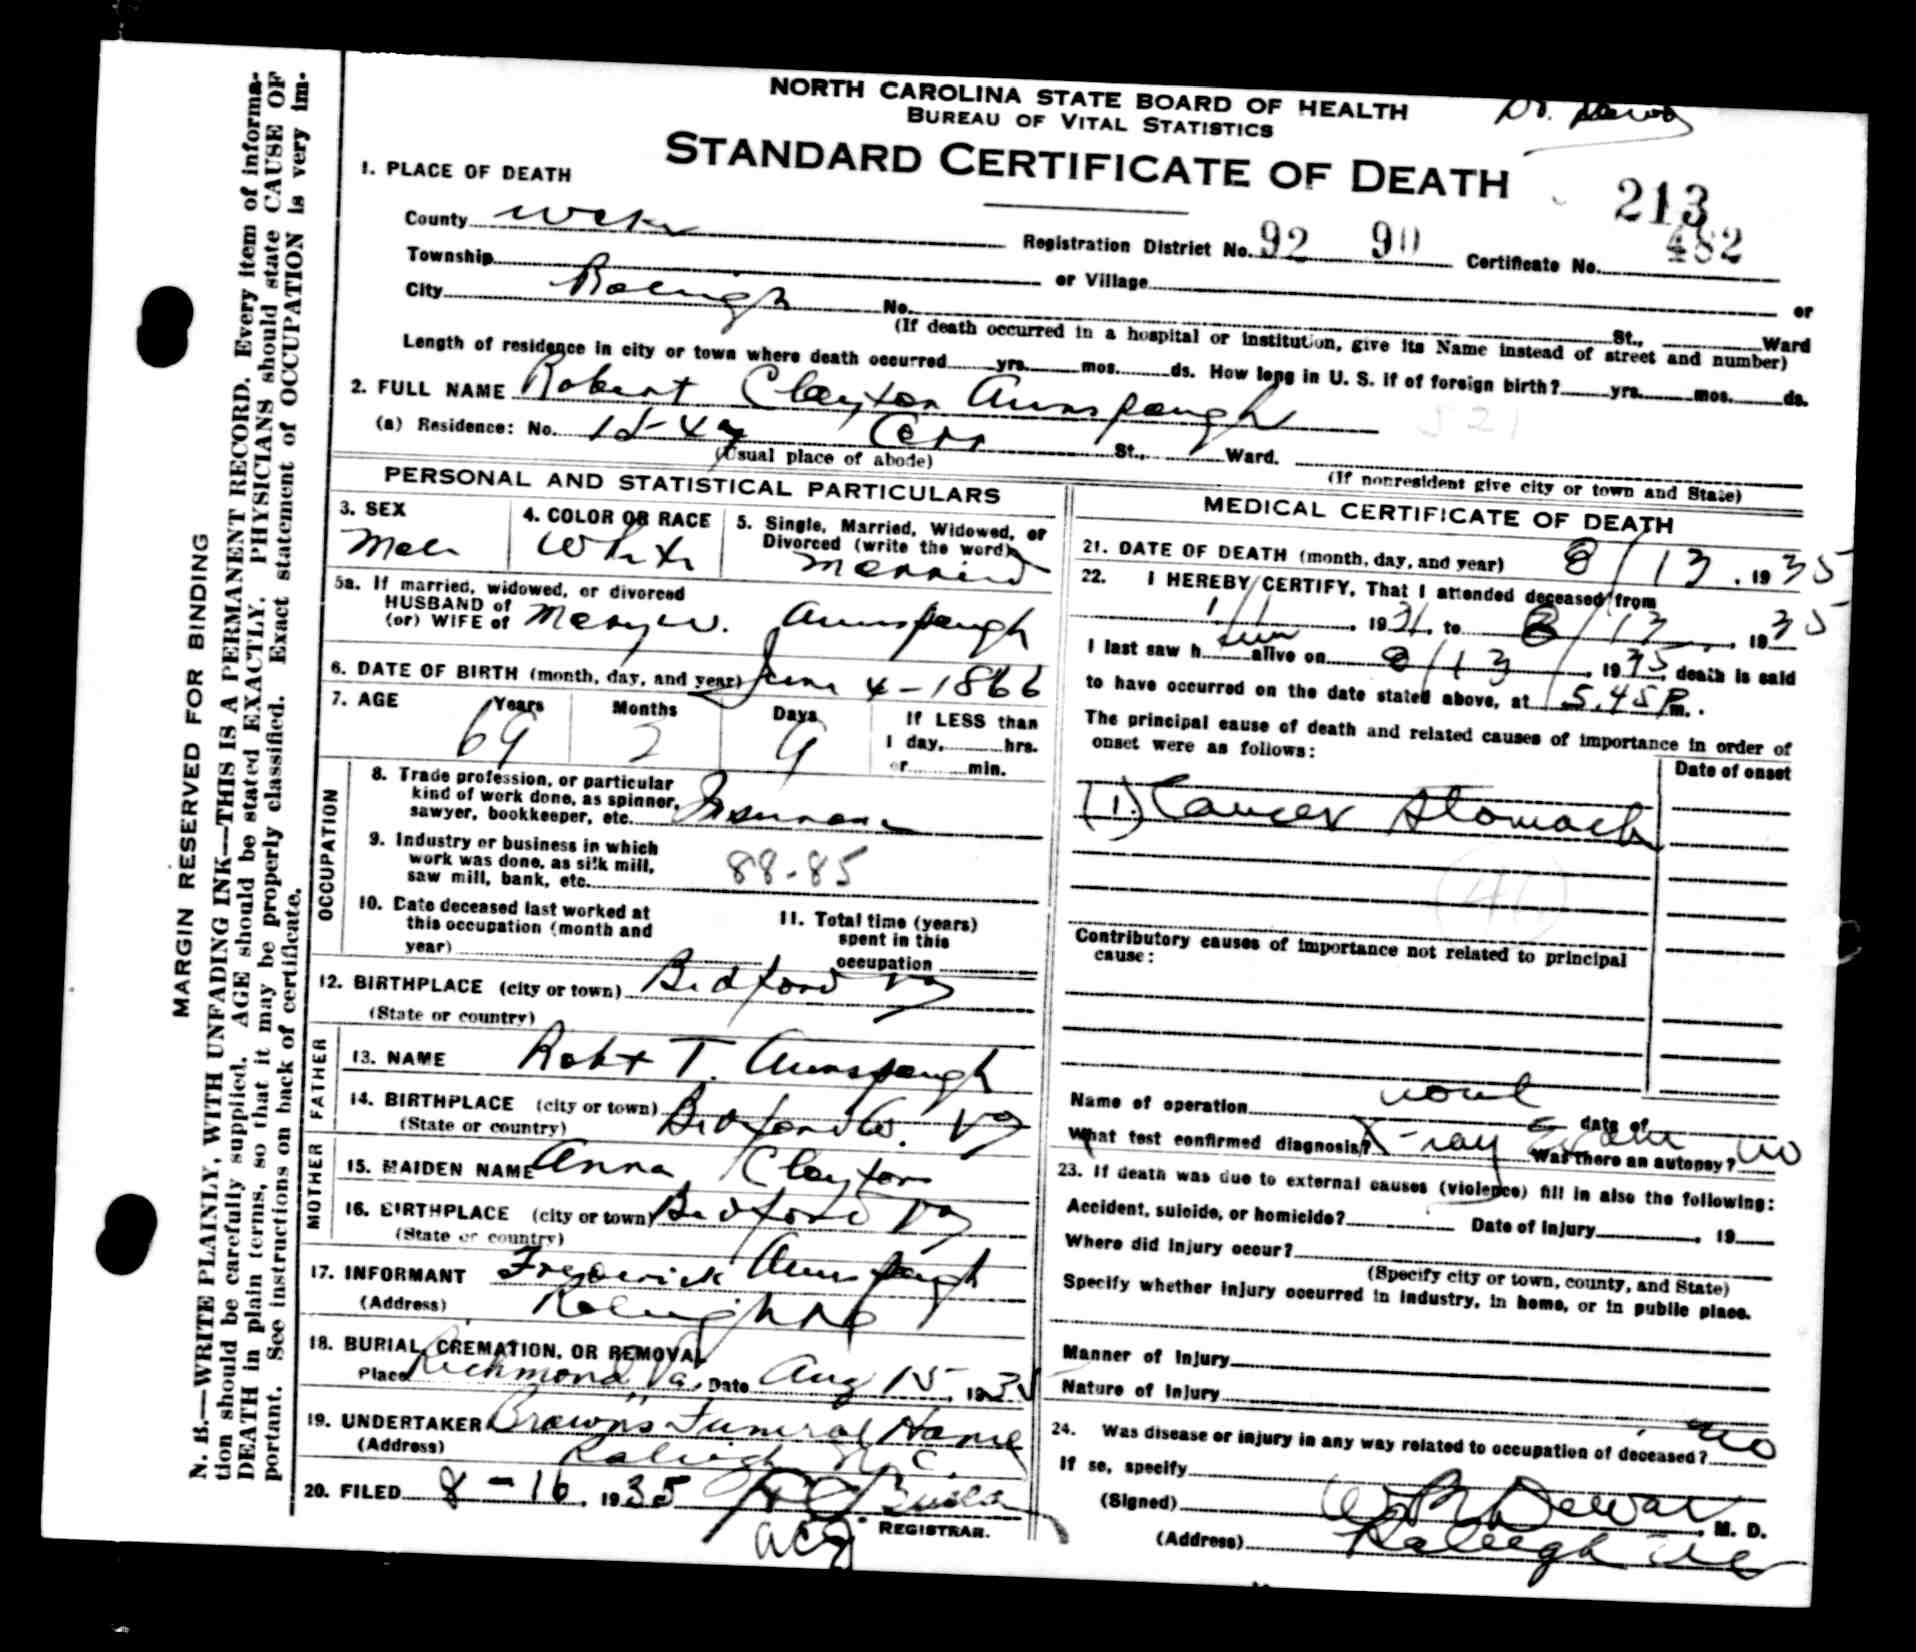 Dr. Dewar
NORTH CAROLINA STATE BOARD OF HEALTH
BUREAU OF VITAL STATISTICS
STANDARD CERTIFICATE OF DEATH
213
1. PLACE OF DEATH
County Wake Registration District No. 92 90 Certificate No. 482
Township or Village or
City Raleigh No. St., Ward
(If death occurred in a hospital or institution, give its Name instead of street and number)
Length of residence in city or town where death occurred yrs. mos. ds. How long in U. S. if of foreign birth? yrs. mos. ds.
2. FULL NAME Robert Clayton Aunspaugh
521
(a) Residence: No. St., Ward.
(Usual place of abode) (If nonresident give city or town and State)
PERSONAL AND STATISTICAL PARTICULARS
3. SEX Male
4. COLOR OR RACE White
5. Single, Married, Widowed, or
Divorced (write the word) Married
5a. If married, widowed, or divorced
HUSBAND of
(or) WIFE of Mary W. Aunspaugh
6. DATE OF BIRTH (month, day, and year) June 4 - 1866
7. AGE Years Months Days If LESS than
69 2 9 1 day, hrs.
or min.
OCCUPATION
8. Trade profession, or particular
kind of work done, as spinner,
sawyer, bookkeeper, etc. Insurance
9. Industry or business in which
work was done, as silk mill,
saw mill, bank, etc. 88-85
10. Date deceased last worked at
this occupation (month and
year)
11. Total time (years)
spent in this
occupation
12. BIRTHPLACE (city or town) Bedford Va
(State or country)
FATHER
13. NAME Robt T. Aunspaugh
14. BIRTHPLACE (city or town) Bedford Co. Va
(State or country)
MOTHER
15. MAIDEN NAME Anna Clayton
16. BIRTHPLACE (city or town) Bedford Va
(State or country)
17. INFORMANT Frederick Aunspaugh
(Address) Raleigh NC
18. BURIAL, CREMATION, OR REMOVAL
Place Richmond, Va. Date Aug 15, 1935
19. UNDERTAKER Brown's Funeral Home
(Address) Raleigh N. C.
20. FILED 8-16, 1935
REGISTRAR.
MEDICAL CERTIFICATE OF DEATH
21. DATE OF DEATH (month, day, and year) 8/13, 1935
22. I HEREBY CERTIFY, That I attended deceased from
1/1, 1931, to 8/13, 1935
I last saw him alive on 8/13, 1935, death is said
to have occurred on the date stated above, at 5.45 P.m.
The principal cause of death and related causes of importance in order of
onset were as follows:
Date of onset
(1) Cancer Stomach
46
Contributory causes of importance not related to principal
cause:
Name of operation none date of
What test confirmed diagnosis? X-ray Was there an autopsy? no
23. If death was due to external causes (violence) fill in also the following:
Accident, suicide, or homicide? Date of injury , 19
Where did injury occur?
(Specify city or town, county, and State)
Specify whether injury occurred in industry, in home, or in public place.
Manner of Injury
Nature of Injury
24. Was disease or injury in any way related to occupation of deceased? no
If so, specify
(Signed) W B Dewar, M. D.
(Address) Raleigh NC
MARGIN RESERVED FOR BINDING
N. B.—WRITE PLAINLY, WITH UNFADING INK—THIS IS A PERMANENT RECORD. Every item of informa-
tion should be carefully supplied. AGE should be stated EXACTLY. PHYSICIANS should state CAUSE OF
DEATH in plain terms, so that it may be properly classified. Exact statement of OCCUPATION is very im-
portant. See instructions on back of certificate.